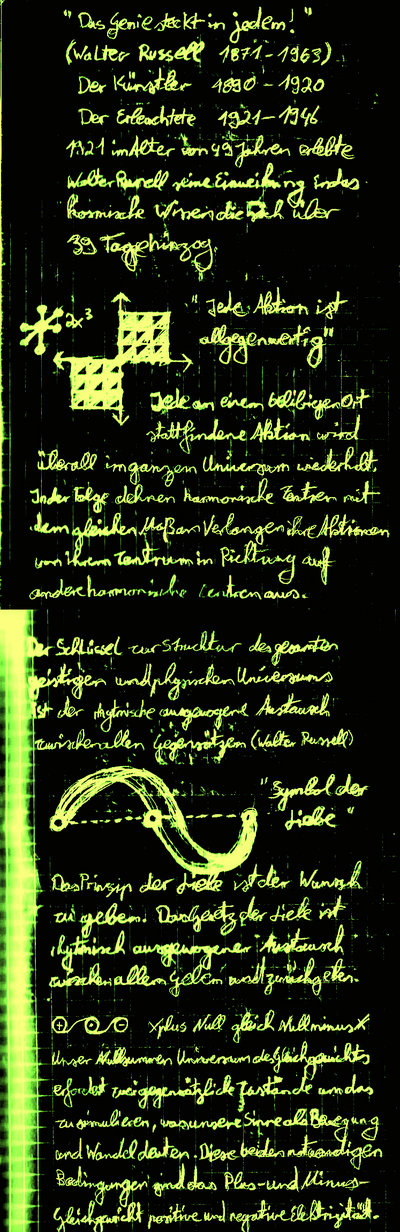 "Das Genie steckt in jedem!"
(Walter Russell 1871-1963)
Der Künstler 1890-1920
Der Erleuchtete 1921-1946
1921 im Alter von 49 Jahren erlebte
Walter Russell seine Einweihung in das
kosmische Wissen die sich über
39 Tage hinzog.
2x³
"Jede Aktion ist
allgegenwertig"
Jede an einem belibiegen Ort
stattfindene Aktion wird
überall im ganzen Universum wiederholt.
In der Folge dehnen harmonische Zentren mit
dem gleichen Maß an Verlangen ihre Aktionen
von ihrem Zentrum in Richtung auf
andere harmonische Zentren aus.
Der Schlüssel zur Struktur des gesamten
geistigen und physischen Universums
ist der rhytmische ausgewogene Austausch
zwischen allen Gegensätzen (Walter Russell)
"Symbol der
Liebe"
Das Prinzip der Liebe ist der Wunsch
zu geben. Das Gesetz der Liebe ist
rhytmisch ausgewogener Austausch
zwischen allem Geben und Zurückgeben.
+ - X plus Null gleich Null minus X
Unser Nullsummen Universum des Gleichgewichts
erfordert zwei gegensätzliche Zustände um das
zu simulieren, was unsere Sinne als Bewegung
und Wandel deuten. Diese beiden notwendigen
Bedingungen sind das Plus- und Minus-
Gleichgewicht positive und negative Elektrizität.